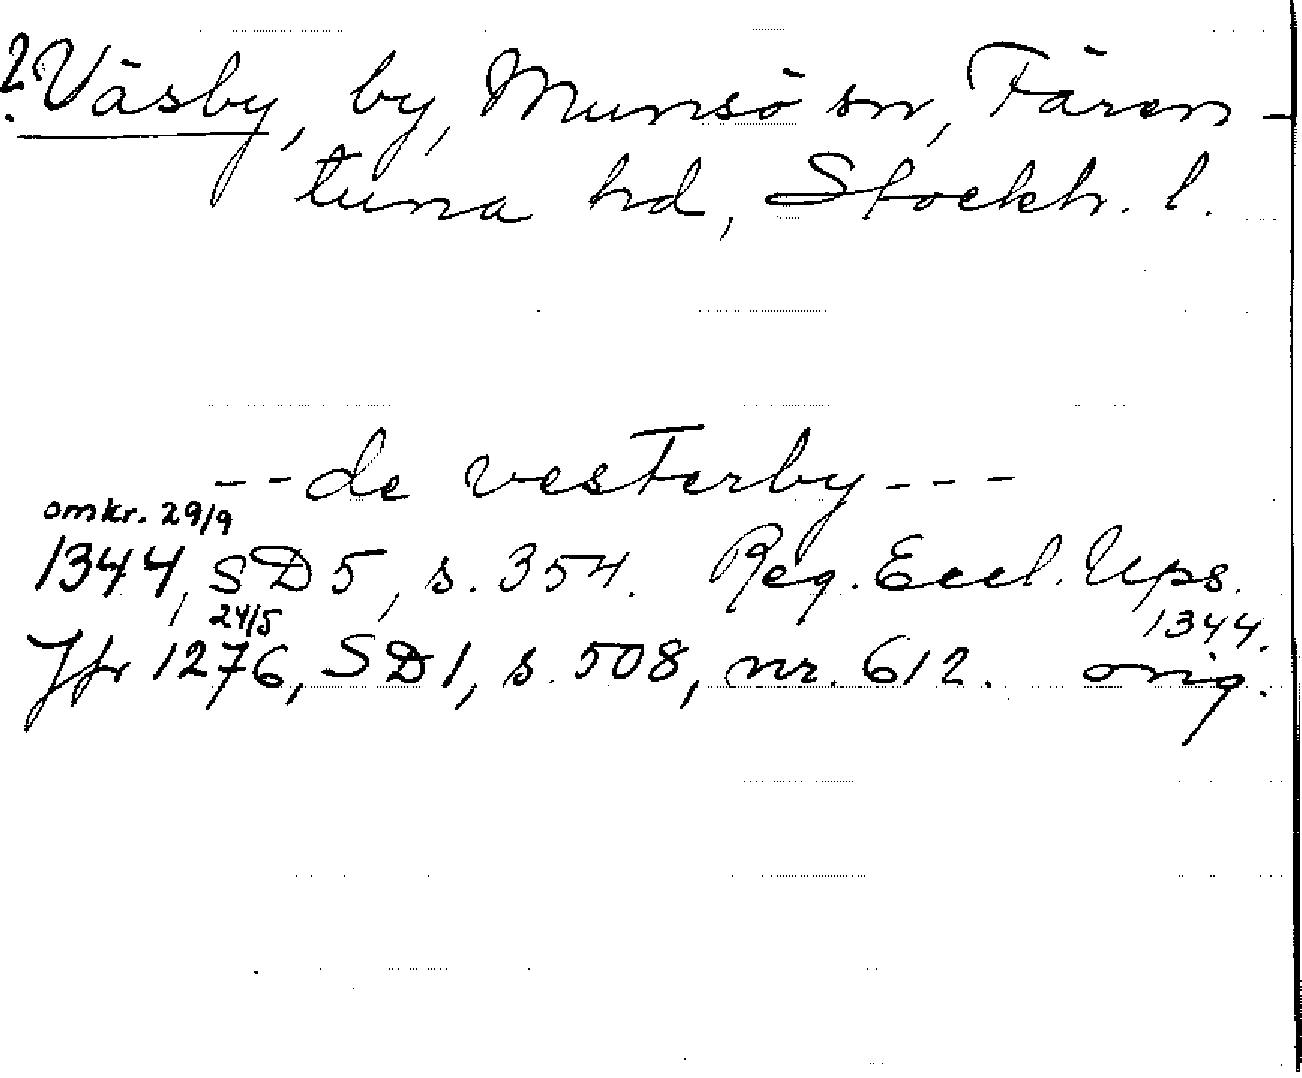 ? Väsby, by, Munsö sn, Fären-
tuna hd, Stockh. l.
-- de vesterby ---
omkr. 29/9
1344, SD 5, s. 354. Reg. Eccl. Ups.
24/5 1344.
Jfr 1276, SD 1, s. 508, nr. 612. orig.